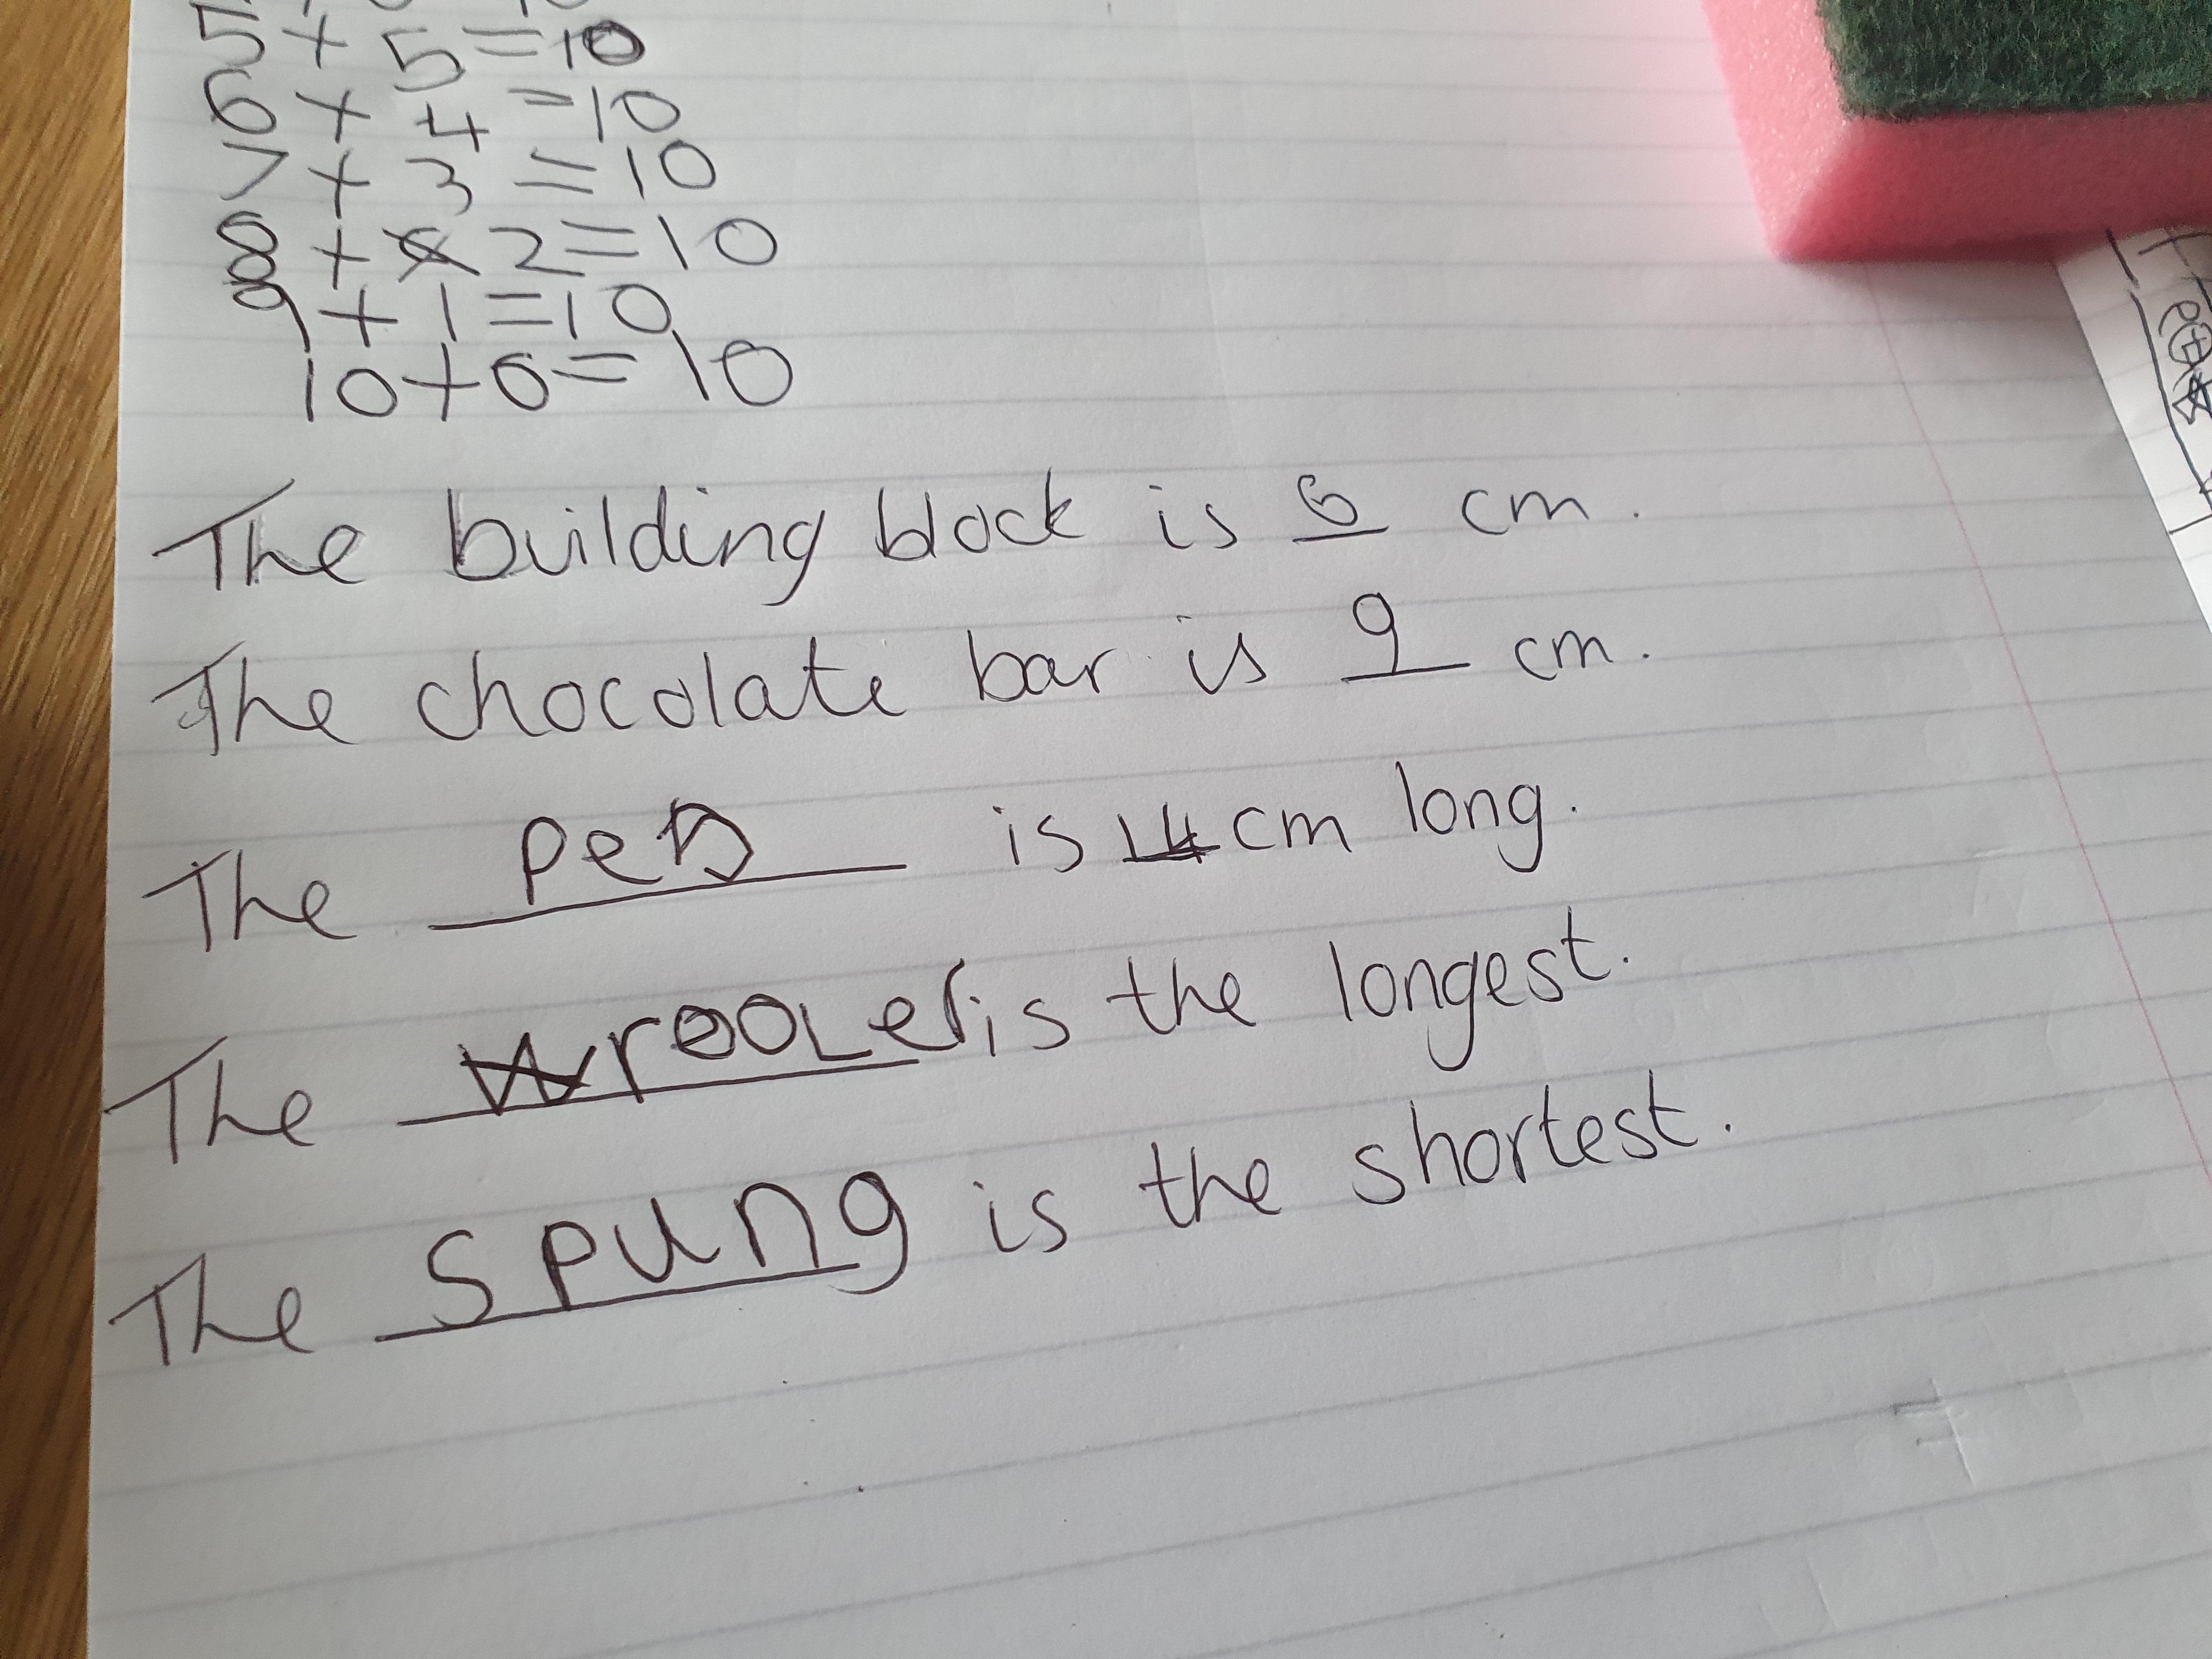 5 + 5 = 10
6 + 4 = 10
7 + 3 = 10
8 + 2 = 10
9 + 1 = 10
10 + 0 = 10
The building block is 6 cm.
The chocolate bar is 9 cm.
The pen is 14 cm long.
The rooler is the longest.
The spung is the shortest.